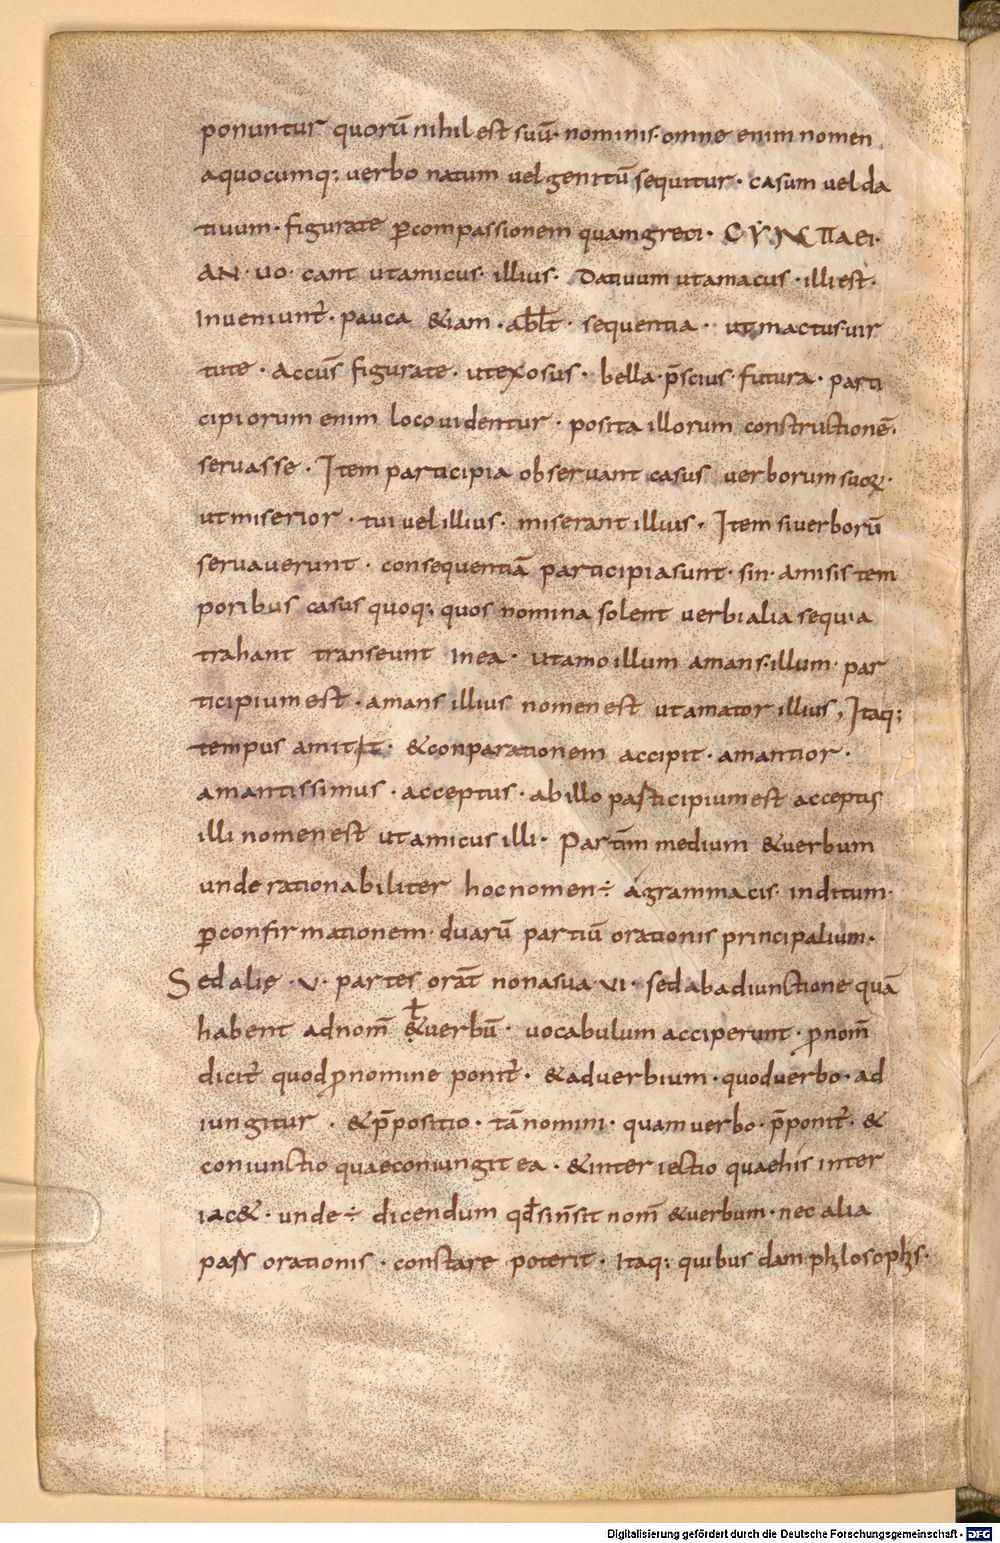 ponuntur quorū nihil est suū · nominis · omne enim nomen
aquocumq; verbo natum vel genitū sequitur · casum vel da
tiuum · figurate ꝑcompassionem quam greci · CYN ΠΑΕΙ·
AN · uo · cant utamicus · illius · Datiuum utamacus · illi est ·
Inueniunt̄ · pauca &iam · abl̄t · sequentia · ut mactus uir
tute · Accus̄ figurate · utexosus · bella · p̄scius · futura · parti
cipiorum enim loco uidentur · posita illorum constructionē ·
seruasse · Item participia obseruant casus verborum suoꝝ ·
ut miserior · tui vel illius · miserant illius · Item si verborū
seruauerunt · consequentiā participia sunt · sin · amisis tem
poribus casus quoq; quos nomina solent verbialia sequi a
trahant transeunt inea · utamo illum amans · illum · par
ticipium est · amans illius nomen est utamator illius, Itaq;
tempus amittit · &conparationem accipit · amantior ·
amantissimus · acceptus · abillo participium est acceptus
illi nomen est utamicus illi · Partim̄ medium &verbum
unde rationabiliter hoc nomen ÷ agrammacis · inditum ·
ꝑconfirmationem · duarū partiū orationis principalium ·
Sed alię · v · partes orat̄ non a sua vi · sed ab adiunctione quā
habent ad nom̄ &verbū · vocabulum acciperunt · ꝓnom̄
dicit̄ quod ꝓnomine ponit̄ · &aduerbium · quod verbo · ad
iungitur · &p̄positio · tā nomini · quam verbo · p̄ponit̄ · &
coniunctio quae coniungit ea · &inter iectio quae his inter
iac& · unde ÷ dicendum qd̄ sin̄ sit nom̄ &verbum · nec alia
pars orationis · constare poterit · Itaq; quibus dam philosophis ·
Digitalisierung gefördert durch die Deutsche Forschungsgemeinschaft - DFG